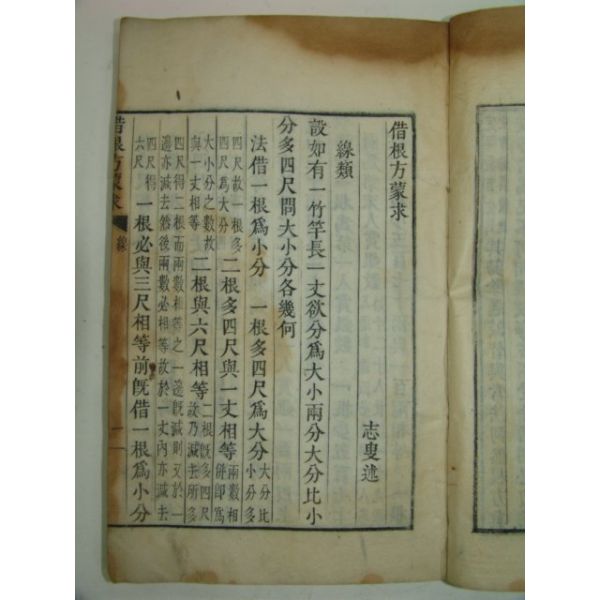 借根方蒙求
志叟述
線類
設如有一竹竿長一丈欲分爲大小兩分大分比小
分多四尺問大小分各幾何
法借一根爲小分一根多四尺爲大分大分比小分多
四尺故一根多四尺爲大分二根多四尺與一丈相等兩數相併卽爲
大小分之數故與一丈相等二根與六尺相等二根旣多四尺故乃減去所多
四尺得二根而兩數相等之一邊旣減則又於一邊亦減去然後兩數必相等故於一丈內亦減去
四尺得六尺一根必與三尺相等前旣借一根爲小分
借根方蒙求
線
一